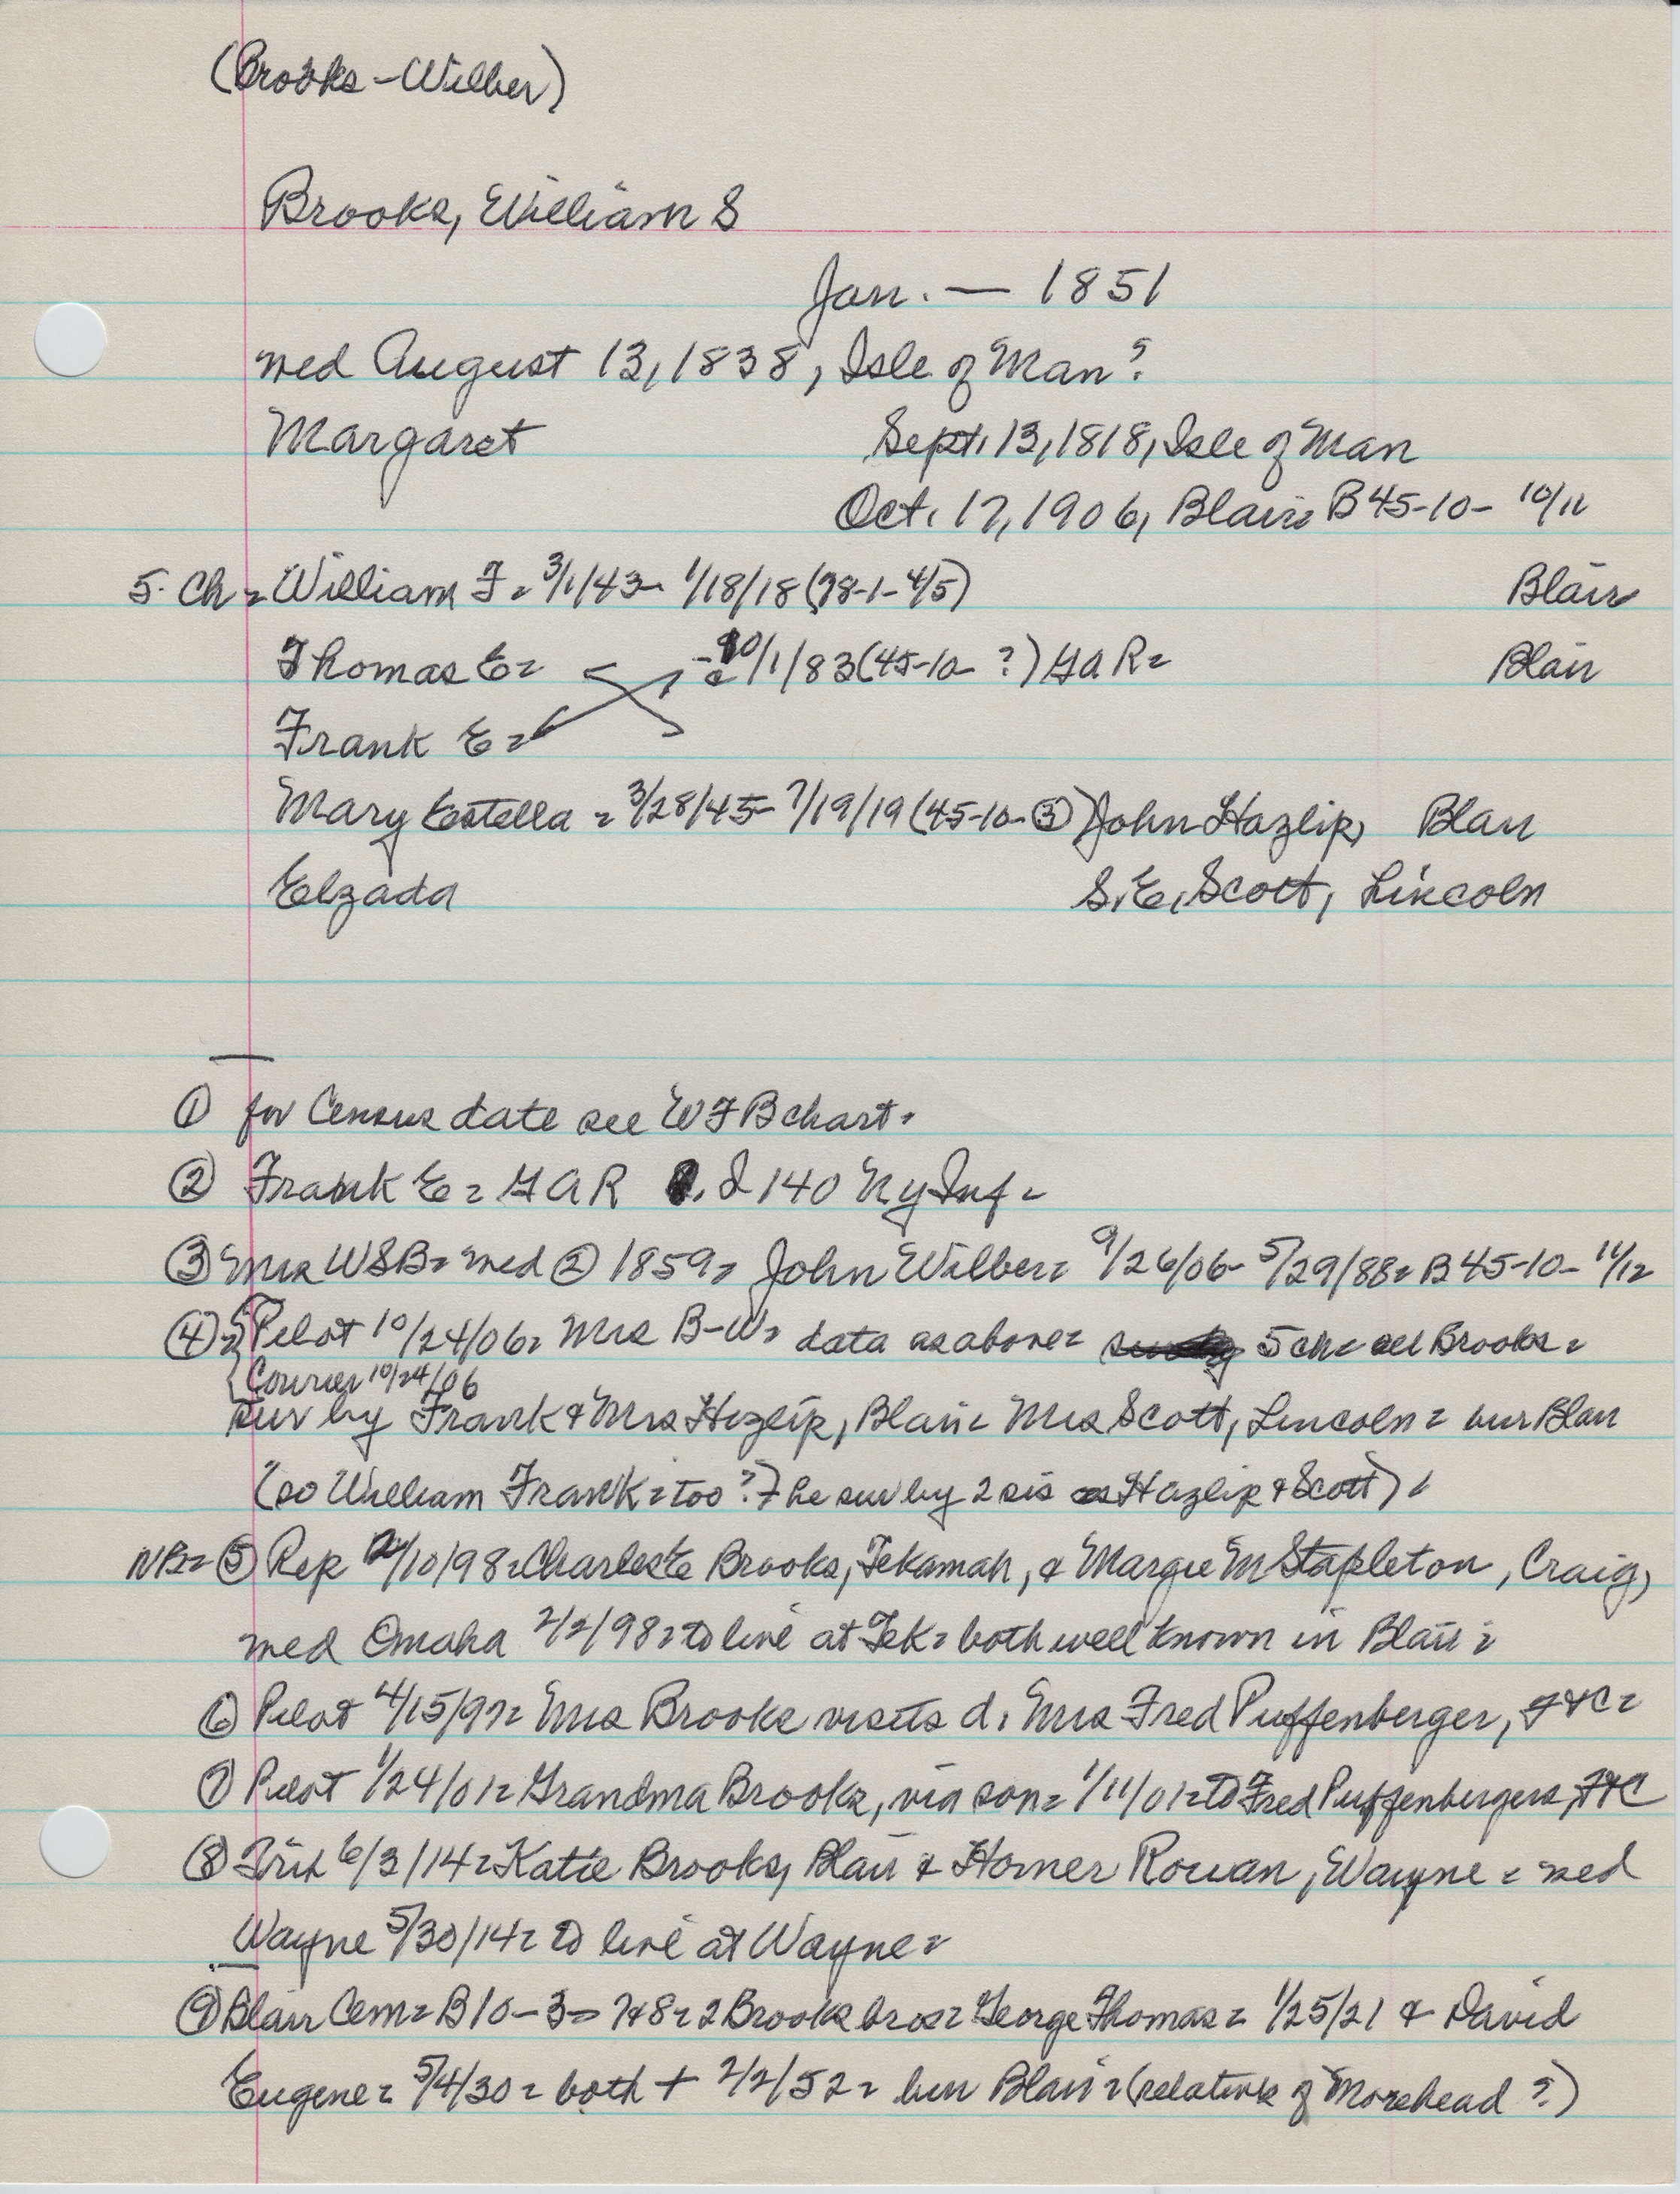 (Brooks-Wilber)
Brooks, William S
Jan. — 1851
med August 13, 1838, Isle of Man?
Margaret Sept. 13, 1818, Isle of Man
Oct. 17, 1906, Blair= B 45-10- 10/12
5 Ch= William F= 3/1/43- 1/18/18 (78-1-4/5) Blair
Thomas E= -10/1/83 (45-10- ?) GAR= Blair
Frank E=
Mary Estella = 3/28/45- 7/19/19 (45-10-③) John Hazlip, Blair
Elzada S. E. Scott, Lincoln
① for Census date see WFB chart.
② Frank E= GAR I 140 Ny Inf=
③ Mrs WSB= med ② 1859= John Wilber= 9/26/06- 5/29/88= B 45-10- 11/12
④= Pilot 10/24/06= Mrs B-W= data as above= 5 ch= all Brooks=
Courier 10/24/06
sur by Frank & Mrs Hazlip, Blair= Mrs Scott, Lincoln= bur Blair
(so William Frank= too? He sur by 2 sis as Hazlip & Scott)
NB= ⑤ Rep 2/10/98= Brooks, Tekamah, & Margie M Stapleton, Craig,
med Omaha 2/2/98= to live at Tek= both well known in Blair=
⑥ Pilot 4/15/97= Mrs Brooks visits d. Mrs Fred Puffenberger, FtC=
⑦ Pilot 1/24/01= Grandma Brooks, via son= 1/11/01= to Fred Puffenbergers, FtC
⑧ Trib 6/3/14= Katie Brooks, Blair & Homer Rowan, Wayne= med
Wayne 5/30/14= to live at Wayne=
⑨ Blair Cem= B10-3= 7&8= 2 Brooks bros= George Thomas= 1/25/21 & David
Eugene= 5/4/30= both + 2/2/52= bur Blair= (relative of Morehead?)